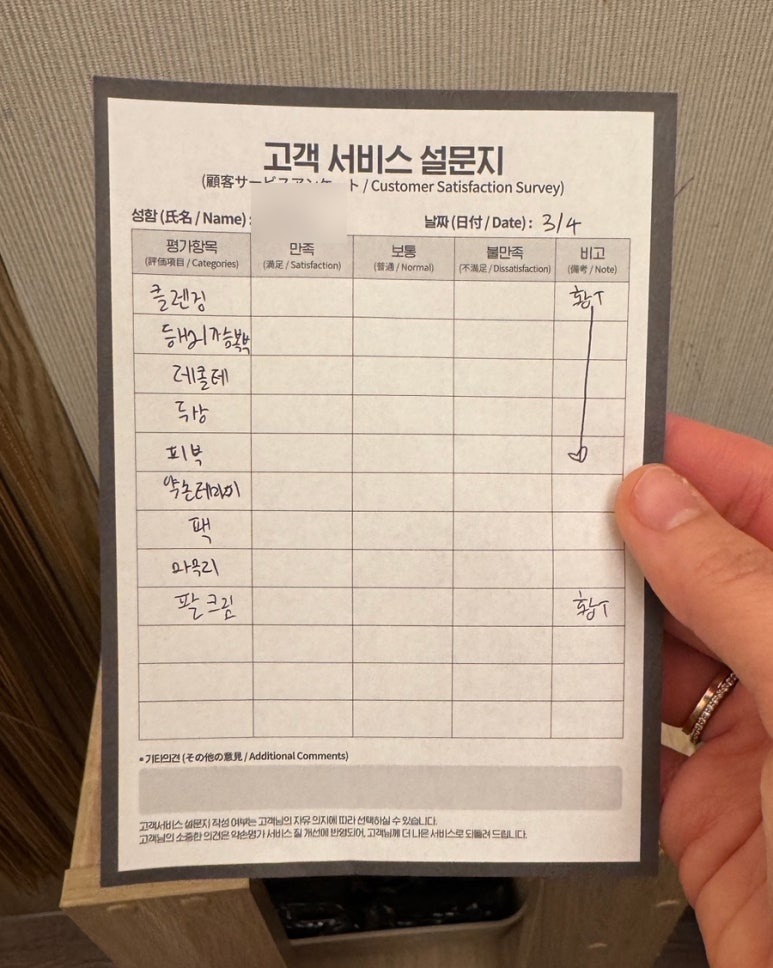 고객 서비스 설문지
(顧客サービスアンケート / Customer Satisfaction Survey)
성함 (氏名 / Name) : 날짜 (日付 / Date) : 3/4
평가항목 만족 보통 불만족 비고
(評価項目 / Categories) (満足 / Satisfaction) (普通 / Normal) (不満足 / Dissatisfaction) (備考 / Note)
클렌징 황T
등해리가슴복부
데콜테
두상
피부
약손테라피
팩
마무리
팔크림 황T
• 기타의견 (その他の意見 / Additional Comments)
고객서비스 설문지 작성 여부는 고객님의 자유 의지에 따라 선택하실 수 있습니다.
고객님의 소중한 의견은 약손명가 서비스 질 개선에 반영되어, 고객님께 더 나은 서비스로 되돌려 드립니다.